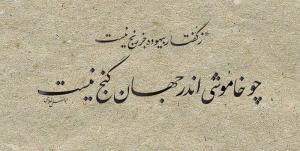 ز گفتار بیهوده جز رنج نیست
چو خاموشی اندر جهان گنج نیست